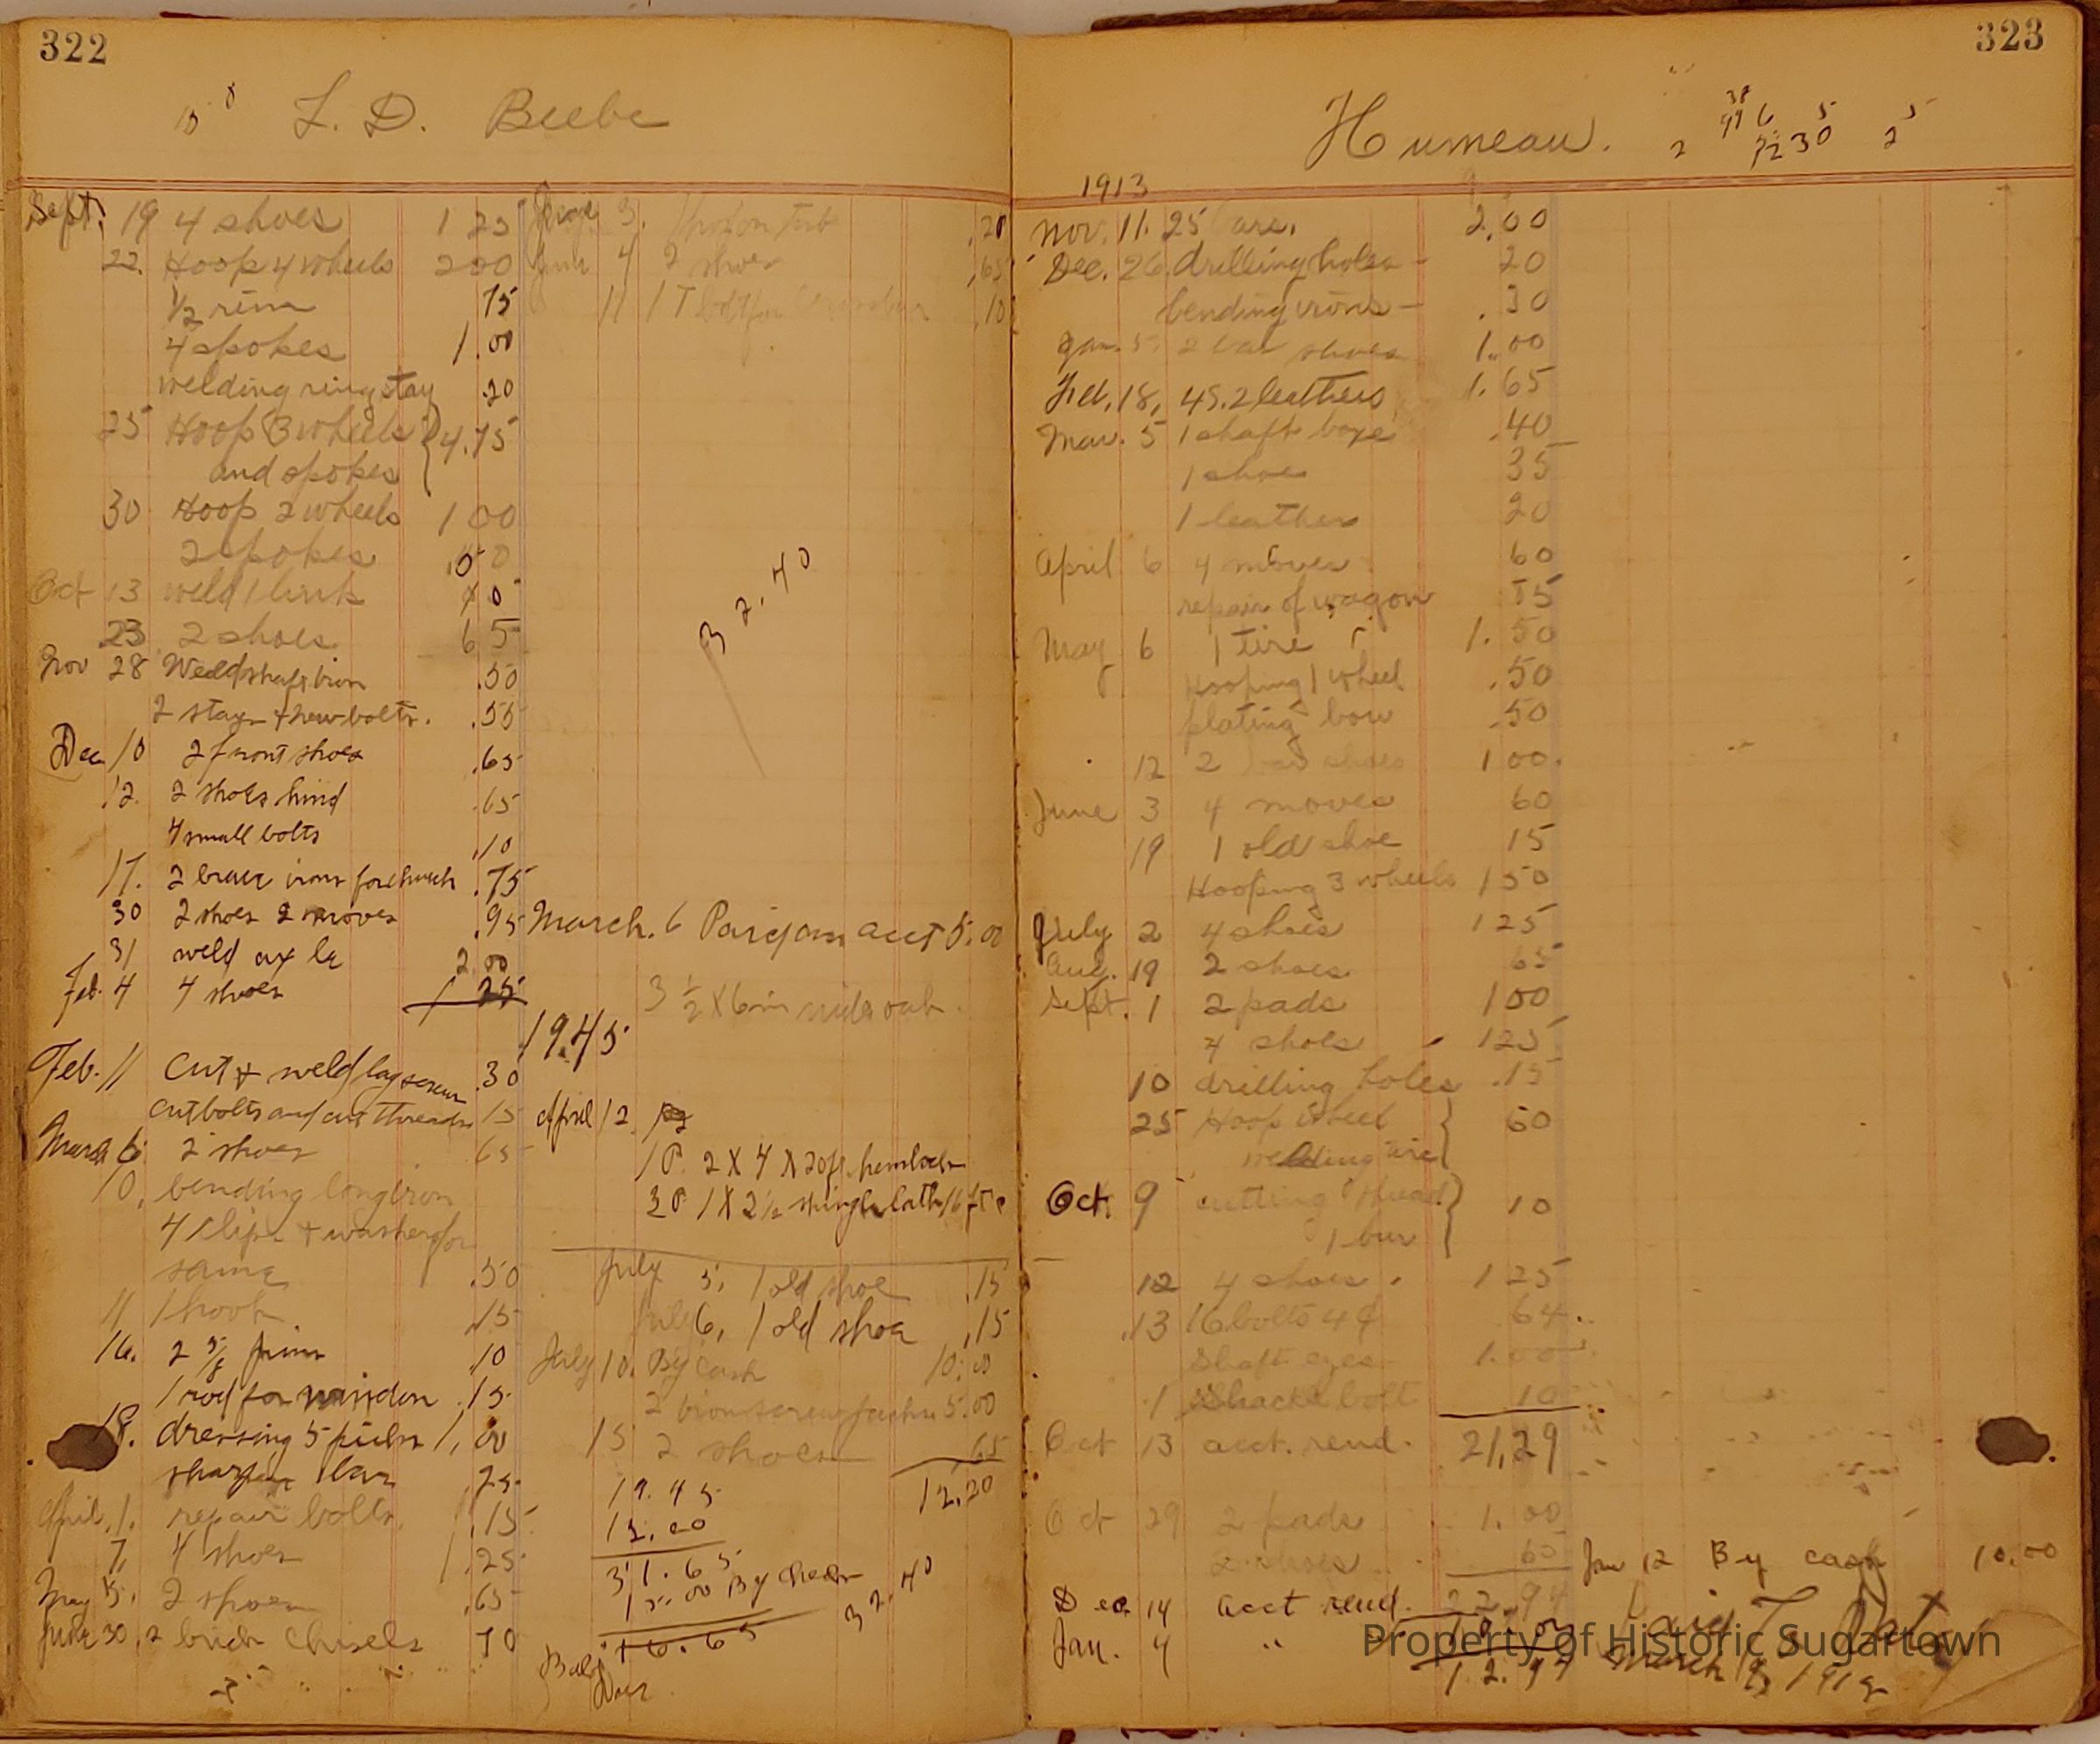 322
L. D. Beebe
Sept. 19 4 shoes 1 25
22. Hoop 4 wheels 2 00
1/2 rim 75
4 spokes 1.00
welding ring stay .20
25 Hoop 3 wheels
and spokes } 4.75
30 Hoop 2 wheels 1 00
2 spokes .50
Oct 13 weld 1 link
23 2 shoes 65
Nov 28 Weld shaft iron .50
2 stays + new bolts. .55
Dec 10 2 front shoes .65
12. 2 shoes hind .65
4 small bolts .10
17. 2 brace irons for .75
30 2 shoes 2 moves .95
31 weld ax le 2.00
Feb. 4 4 shoes 1 25
Feb. 11 cut + weld lag screw .30
cut bolts and cut threads 15
March 6 2 shoes 65
10. bending long iron
4 clips + washers for
same .50
11 1 hook .15
16. 2 5/8 pins .10
1 rod for .15
18. dressing 5 picks 1.00
sharpen 1 bar .25
April. 1. repair bolts. .15
7. 4 shoes 1.25
May 15. 2 shoes .65
June 30. 2 brick chisels 70
June 3. tub .20
June 4 2 shoes .65
11 1 T bolt for .10
32.40
March. 6 acct 5.00
3 1/2 X 6 in oak.
19.45
April 12.
1 P. 2 X 4 X 20 ft. hemlock
3 P 1 X 2 1/2 shingle lath 16 ft
July 5. 1 old shoe .15
July 6, 1 old shoe .15
July 10. By Cash 10.00
2 5.00
15 2 shoes .65
12.20
19.45
12.20
31.65
15.00 By Check
16.65
32.40
Bal.
Due
323
Humeau.
1913
Nov. 11. 25 2.00
Dec. 26 drilling holes - 20
bending irons - .30
Jan. 5. 2 bar shoes 1.00
Feb. 18. 4S. 2 leathers 1.65
Mar. 5 1 shaft .40
1 shoe 35
1 leather 20
April 6 4 moves 60
repair of wagon 75
May 6 1 tire 1.50
Hooping 1 wheel .50
plating bow .50
12 2 bar shoes 1 00.
June 3 4 moves 60
19 1 old shoe 15
Hooping 3 wheels 1 50
July 2 4 shoes 1 25
Aug. 19 2 shoes 65
Sept. 1 2 pads 1 00
4 shoes 1 25
10 drilling holes .15
25 Hoop wheel
welding tire } 60
Oct. 9 cutting thread
1 bur } 10
12 4 shoes. 1 25
13 16 bolts 4¢ 64.
Shaft eyes 1.00
1 Shackle bolt 10
Oct 13 acct. rend. 21,29
Oct 29 2 pads 1.00
2 shoes 65
Jan 12 By cash 10.00
Dec 14 acct rend. 22.94
Jan. 4 " 10.00
12.94
March 1912
Property of Historic Sugartown